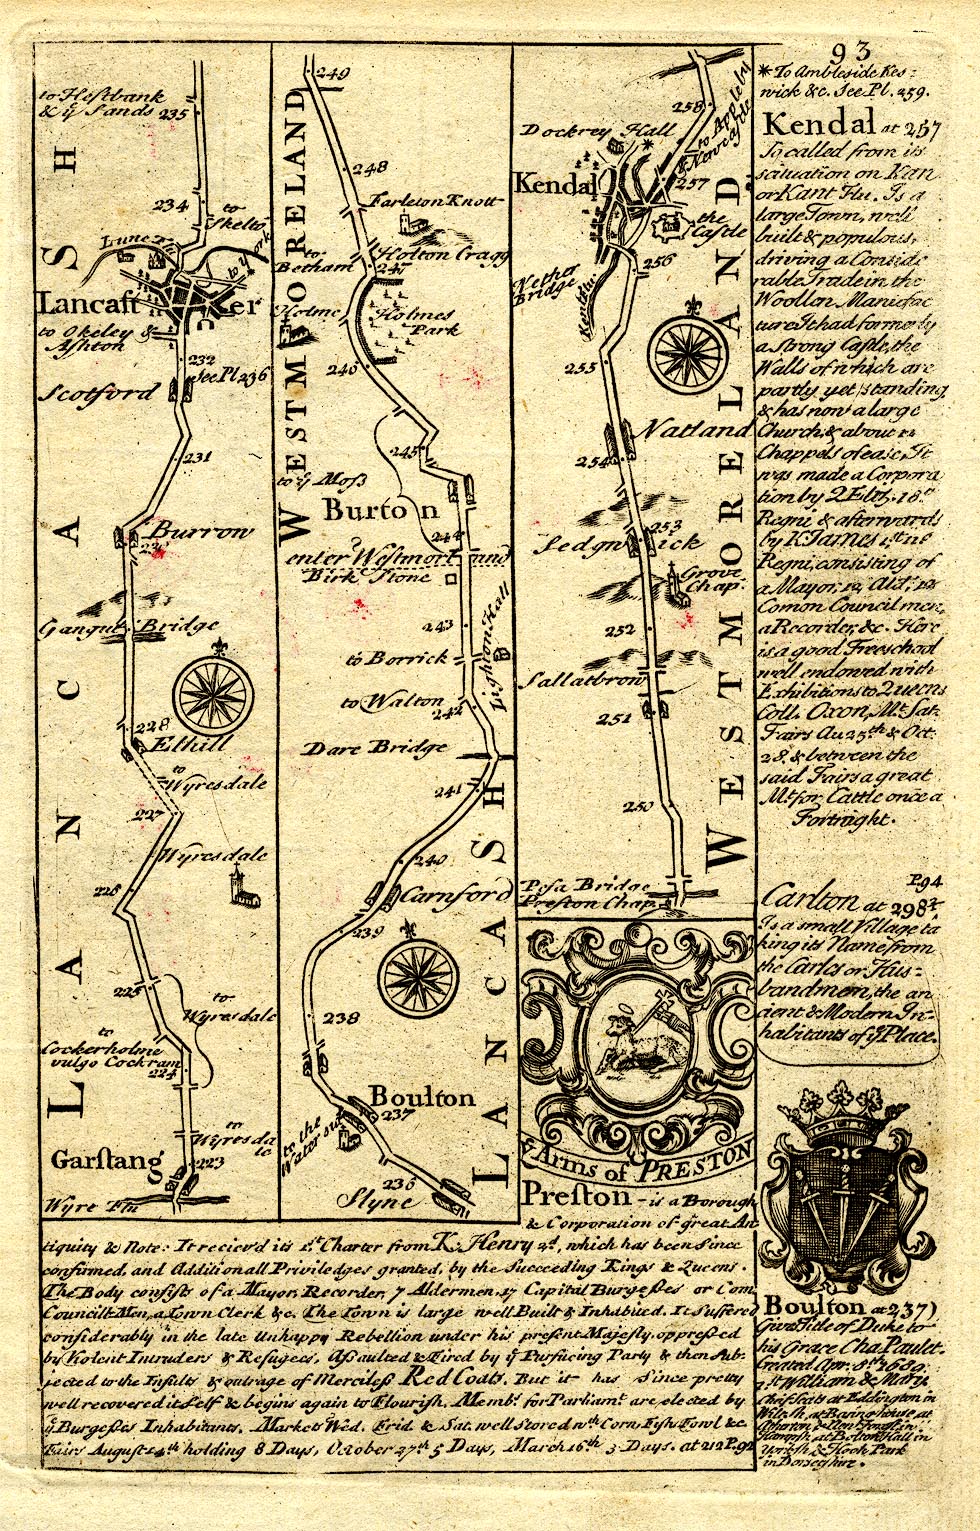 93
to Hestbank
& ÿ Sands
235
234
to
Skelto
Lune R.
to York
Lancast er
to Okeley &
Ashton
232
See Pl 236
Scotford
231
Burrow
Gangut Bridge
228
Elhill
to
Wyresdale
227
Wyresdale
226
225
to
Wyresdale
to
Cockerholme
vulgo Cockram
224
to
Wyresda
le
223
Garstang
Wyre Flu
LANCASH
249
248
Farleton Knott
to
Betham
Holton Cragg
247
Holme
Holmes
Park
246
245
to ÿ Moss
Burton
244
enter Westmorland
Birk Stone
243
Lighton Hall
to Borrick
to Walton
242
Dare Bridge
241
240
Carnford
239
238
Boulton
237
to the
Water side
236
Slyne
WESTMORELAND
LANCASH
258
to Appleby
& Newcastle
Dockrey Hall
*
Kendal
257
the
Castle
256
Nether
Bridge
Kent flu.
255
Natland
254
253
Sedgn ick
Grove
Chap.
252
Sallatbrow
251
250
Pesa Bridge
Preston Chap.
WESTMORELAND
*To Ambleside Kes=
wick &c. See Pl. 259.
Kendal at 257
So called from its
scituation on Kan
or Kant Flu. Is a
large Town, well
built & populous,
driving a Conside
rable Trade in the
Woollon Manufac
ture. It had formerly
a Strong Castle, the
Walls of which are
partly yet standing
& has now a large
Church, & about 12
Chappels of ease. It
was made a Corpora
tion by Q Eliz, 18.th
Regni & afterwards
by K. James 1.st
Regni, consisting of
a Mayor, 12 Ald.n 12
Comon Council men,
a Recorder, &c. Here
is a good Freeschool
well endowed with
Exhibitions to Queens
Coll. Oxon, Mt. Sat.
Fairs Au 25th & Oct.
28, & between the
said Fairs a great
Mt. for Cattle once a
Fortnight.
P94
Carlton at 298¼
Is a small Village ta
king its Name from
the Carles or Hus=
bandmem, the an
cient & Modern In-
habitants of ÿ Place.
ÿ Arms of PRESTON
Preston - is a Borough
& Corporation of great An
tiquity & Note: It reciev'd its 1.st Charter from K. Henry 2.d, which has been since
confirmed, and Additionall Priviledges granted, by the Succeeding Kings & Queens.
The Body consists of a Mayor, Recorder, 7 Aldermen, 17 Capital Burgesses or Com.
Councill Men, a Town Clerk &c. The Town is large well Built & Inhabited. It Suffered
considerably in the late Unhappy Rebellion under his present Majesty, oppressed
by Violent Intruders & Refugees, Assaulted & Fired by ÿ Pursueing Party & then Sub-
jected to the Insults & outrage of Merciless Red Coats. But it has since pretty
well recovered it Self & begins again to Flourish. Memb.s for Parliam.t are elected by
ÿ Burgesses Inhabitants. Markets Wed. Frid & Sat. well Stored w.th Corn, Fish, Fowl &c.
Fairs August 14th holding 8 Days, October 27th 5 Days, March 16th 3 Days. at 212 P. 92
Boulton at 237)
Gives Title of Duke to
his Grace Cha. Paulet.
Created Apr. 8th 1689.
1st William & Mary
chief Seats at Eddington in
at Bolton Hall in
Yorksh. & Hook Park
in Dorsetshire.